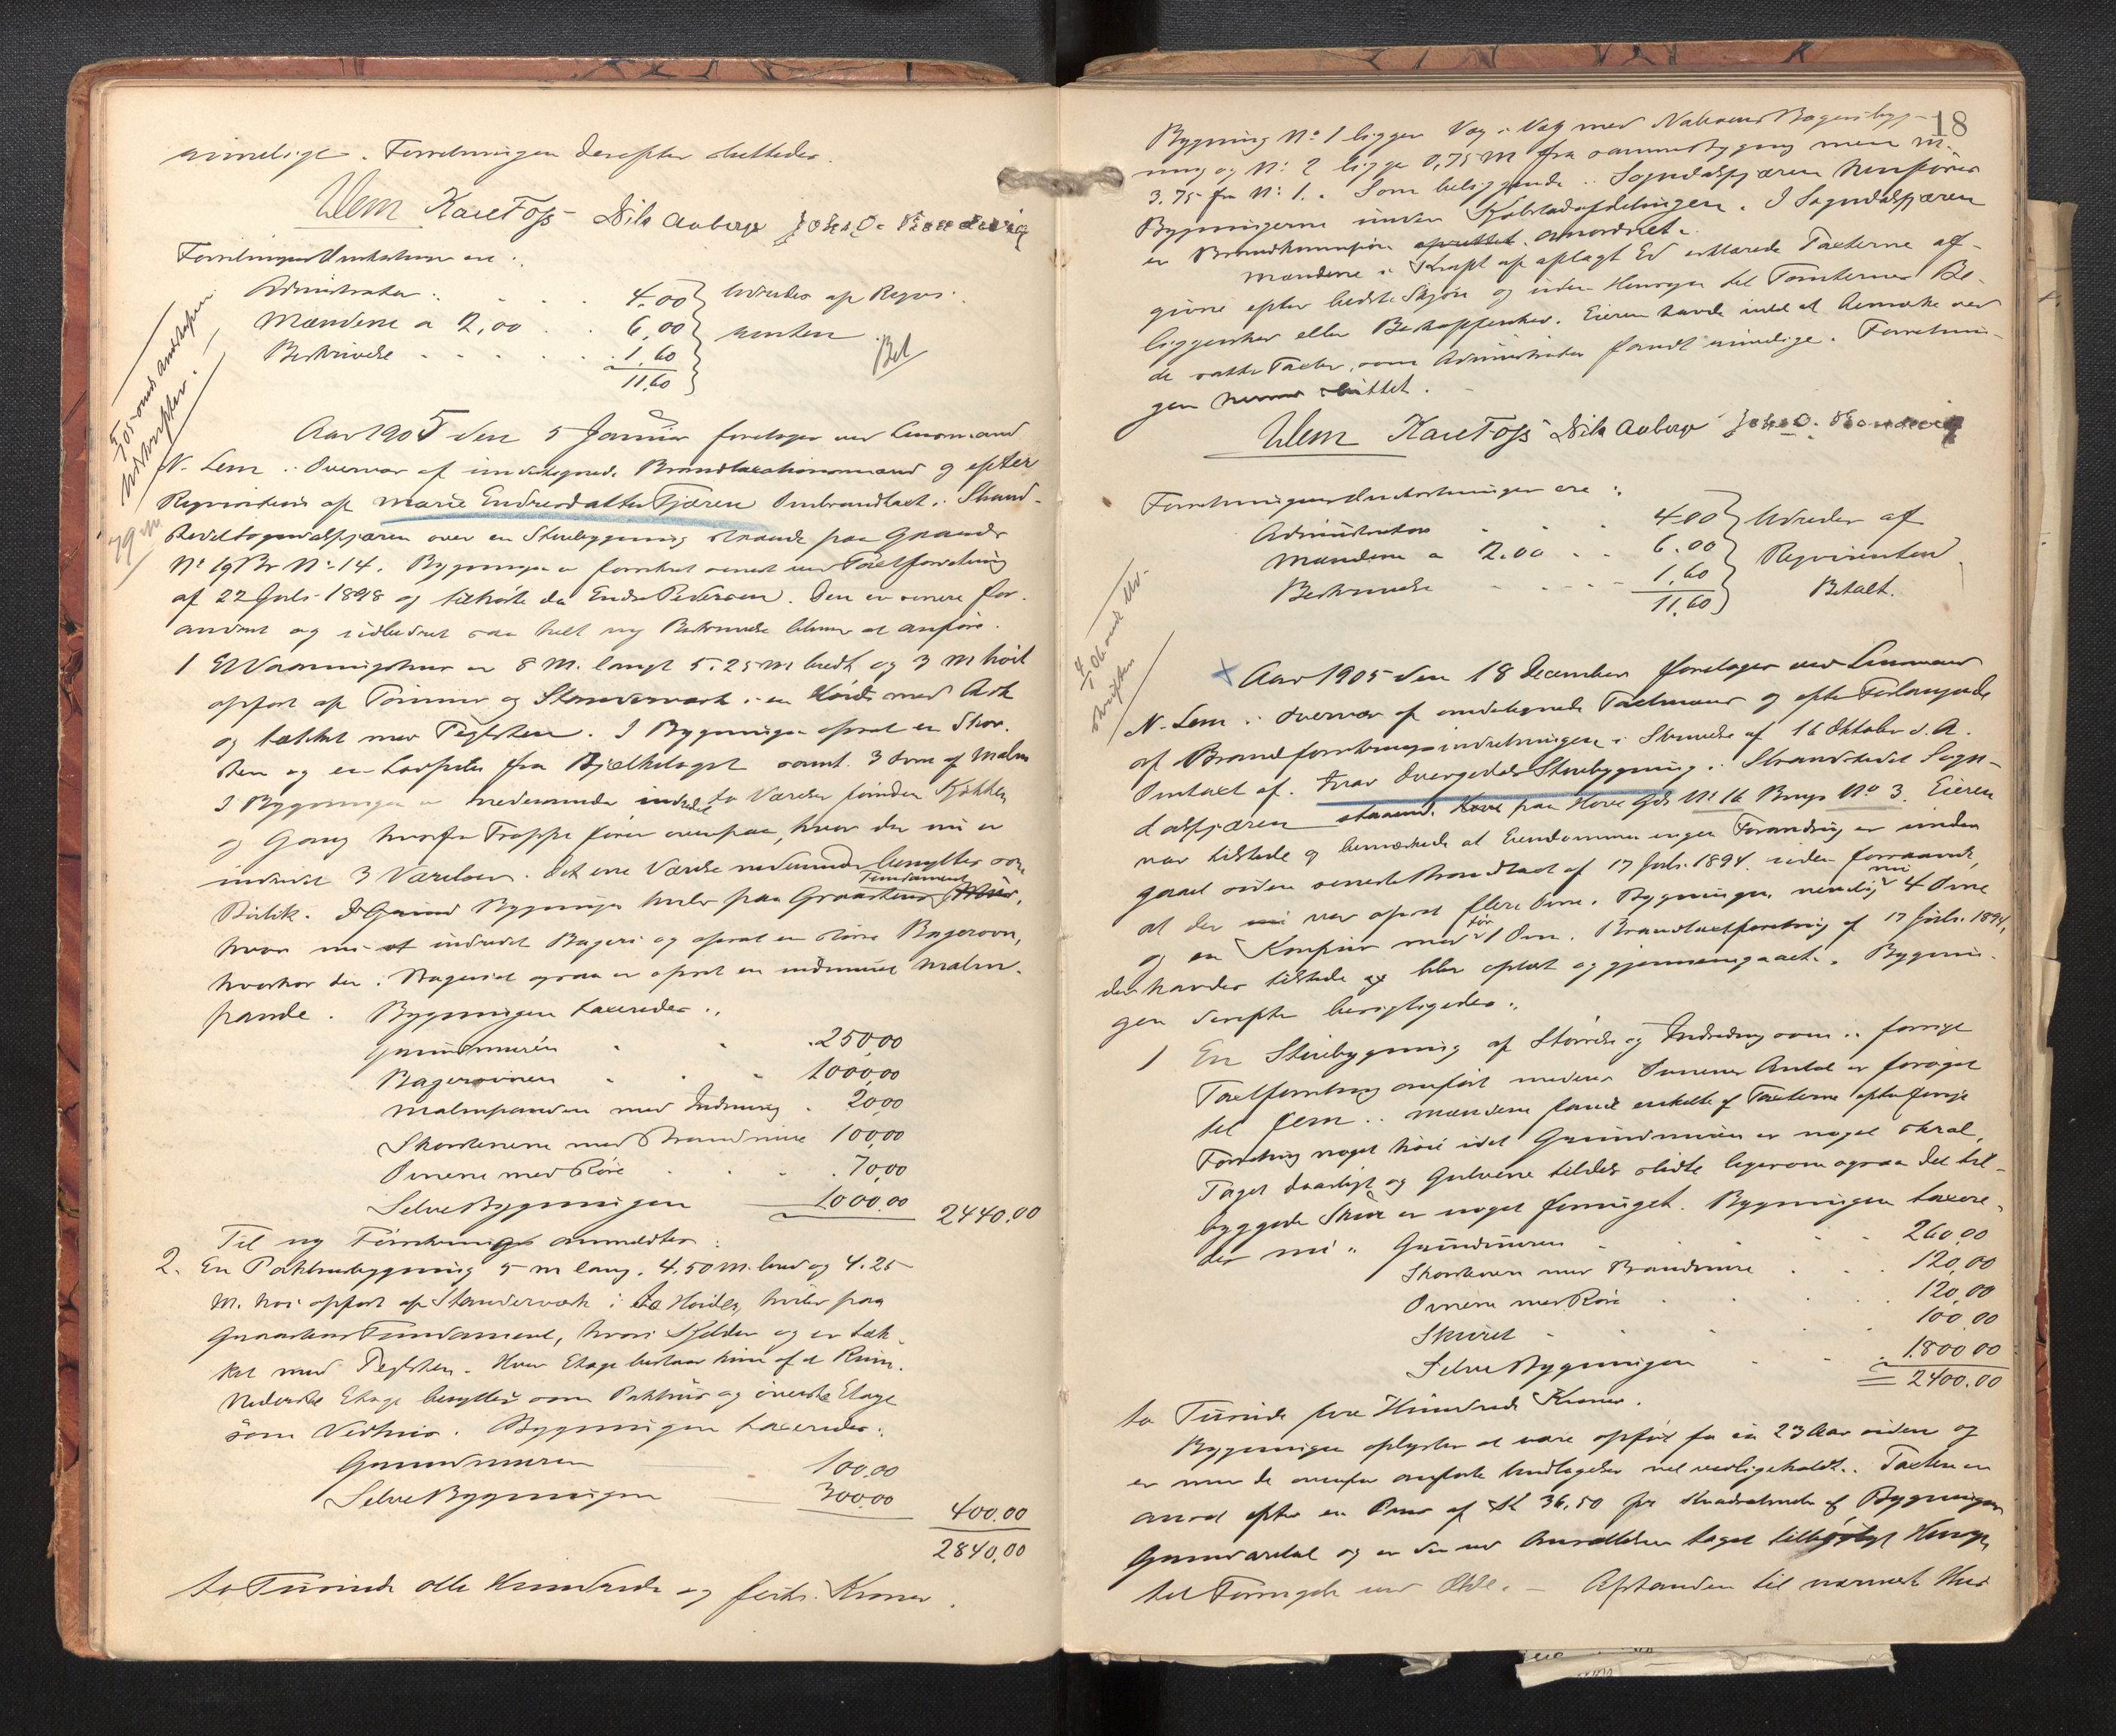 rimelige. Forretningen derefter sluttedes.
Lem Kare Foss Nils Aaberge Johs O.
Forretningens Omkostninger ere:
Administrator 4.00 Udredes af Reqvi-
Mændene a 2,00 6,00 renten
Beskrivelse 1,60 Bet
11,60
Aar 1905 den 5 Januar foretoges ved Lensmand
N. Lem i Overvær af undertegnede Brandtaxationsmænd og efter
Reqvisition af Marie Endresdatter Fjæren Ombrandtaxt i Strand-
stedet Sogndalsfjæren over en Stuebygning staaende paa Gaards
No 19 Br No 14. Bygningen er forsikret senest ved Taxtforretning
af 22 Juli 1898 og tilhørte da Endre Pedersen. Den er senere for-
andret og udbedret saa helt ny Beskrivelse bliver at anføre.
1 Et Vaaningshus er 8 M. langt 5.25 M bredt og 3 M høit
opført af Tømmer og Standerværk i en Høide med Ark
og tækket med Teglsten. I Bygningen opsat en Skor-
sten og en fra Bjælkelaget samt 3 Ovne af Malm
I Bygningen er nedenunder indredet to Værelser foruden Kjøkken
og Gang hvorfra Trappe fører ovenpaa, hvor der nu er
indredet 3 Værelser. Det ene Værelse nedenunder benyttes som
Butik. Bygningen hviler paa Graastens Fundament,
hvor nu er indredet Bageri og opsat en større Bagerovn,
hvorhos der i Bageriet ogsaa er opsat en indmuret Malm-
pande. Bygningen taxeredes:
Grundmuren 250,00
Bagerovnen 1000,00
Malmpanden med Indmuring 20,00
Skorstenene med Brandmure 100,00
Ovnene med Rør 70,00
Selve Bygningen 1000.00 2440.00
Til ny Forsikring anmeldtes:
2. En Pakhusbygning 5 m lang, 4.50 M. bred og 4.25
M. høi opført af Standerværk i to Høider, hviler paa
Graastens Fundament, hvori Kjelder og er tæk-
ket med Teglsten. Hver Etage bestaar kun af et Rum.
Nederste Etage benyttes som Pakhus og øverste Etage
som Vedhus. Bygningen taxeredes:
Grundmuren 100.00
Selve Bygningen 300.00 400.00
2840,00
to Tusinde otte Hundrede og førti Kroner.
18
Bygning No 1 ligger Væg i Væg med Naboens Bageribyg-
ning og No 2 ligger 0,75 M fra samme bygning men M.
3.75 fra No 1. Som beliggende i Sogndalsfjæren henføres
Bygningerne under Kjøbstadafdelingen. I Sogndalsfjæren
er Brandkommission anordnet.
Mændene i Kraft af aflagt Ed erklærede Taxterne af-
givne efter bedste Skjøn og uden Hensyn til Tomternes Be-
liggenhed eller Beskaffenhed. Eieren havde intet at bemærke ved
de satte Taxter, som Administrator fandt rimelige. Forretnin-
gen hermed sluttet.
Lem Kare Foss Nils Aaberge Johs O.
Forretningens Omkostninger ere:
Administrator 4.00 Udredes af
Mændene a 2.00 6.00 Reqvirenten
Beskrivelse 1,60 Betalt.
11,60
Aar 1905 den 18 December foretoges ved Lensmand
N. Lem i Overvær af undertegnede Taxtmænd og efter Forlangende
af Brandforsikringsindretningen i Skrivelse af 16 Oktober d. A.
Omtaxt af Stuebygning i Strandstedet Sogn-
dalsfjæren staaende paa Hove Gds No 16 Brugs No 3. Eieren
var tilstede og bemærkede at Eiendommen ingen Forandring er under-
gaaet siden seneste Brandtaxt af 17 Juli 1894 uden forsaavidt,
at der var opsat flere Ovne i Bygningen, nemlig nu 4 Ovne
og en Komfur mod før 1 Ovn. Brandtaxtforretning af 17 Juli 1894,
der havdes tilstede blev oplæst og gjennemgaaet. Bygnin-
gen derefter besigtigedes:
1 En Stuebygning af Størrelse og Indredning som i forrige
Taxtforretning anført medens Ovnenes Antal er forøget
til fem. Mændene fandt enkelte af Taxterne efter forrige
Forretning noget høie idet Grundmuren er noget skral,
Taget daarligt og Gulvene tildels slidte ligesom ogsaa det til-
byggede Skur er noget forringet. Bygningen taxere-
des nu: Grundmuren 260.00
Skorstenen med Brandmure 120,00
Ovnene med Rør 120,00
Skuret 100.00
Selve Bygningen 1800.00
2400.00
to Tusinde fire Hundrede Kroner.
Bygningen oplystes at være opført for ca 23 Aar siden og
er med de ovenfor anførte Undtagelser vel vedligeholdt. Taxten er
ansat efter en Pris af Kr 36,50 pr Kvadratmeter af Bygningens
Grundareal og er der ved Ansættelsen taget tilbørligt Hensyn
til Forringelse ved Ælde. — Afstanden til nærmeste Hus